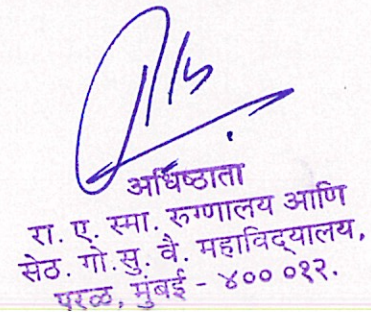 अधिष्ठाता
रा. ए. स्मा. रुग्णालय आणि
सेठ. गो.सु. वै. महाविद्यालय,
परळ, मुंबई - ४०० ०१२.